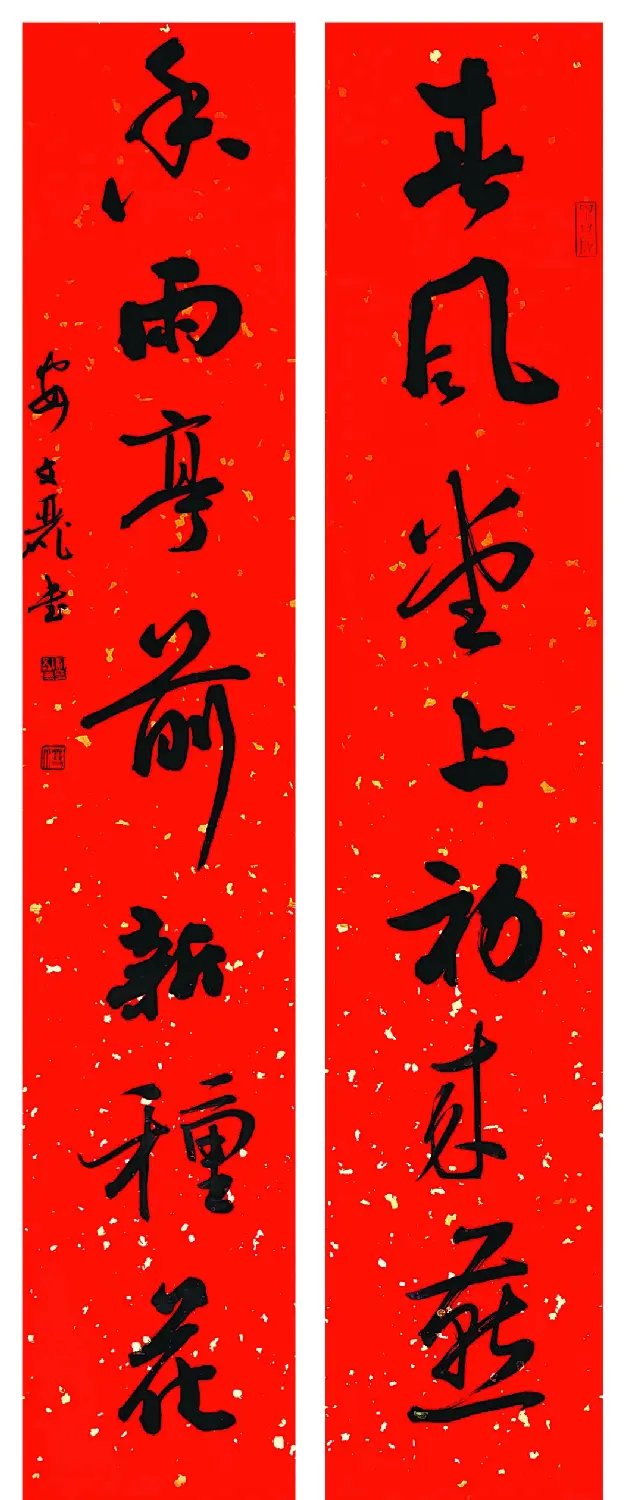 春風堂上初來燕
香雨亭前新種花
安文麗書